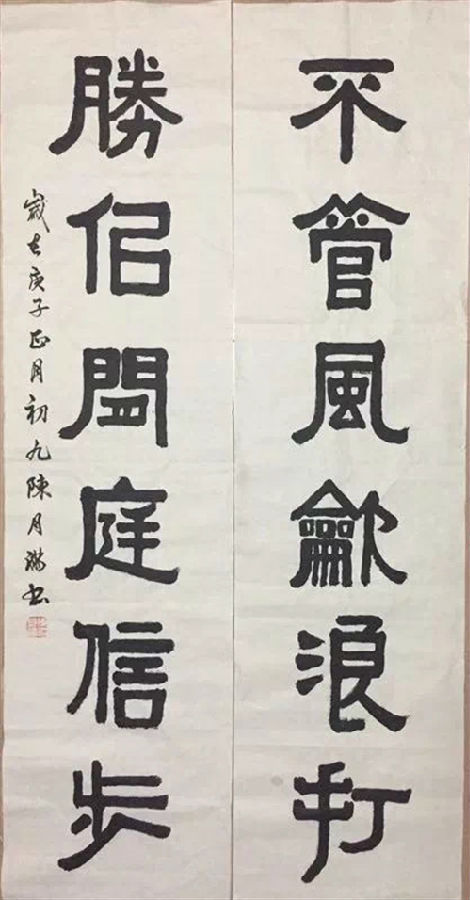 不管風龡浪打
勝佀閒庭信步
歲在庚子正月初九陳月書